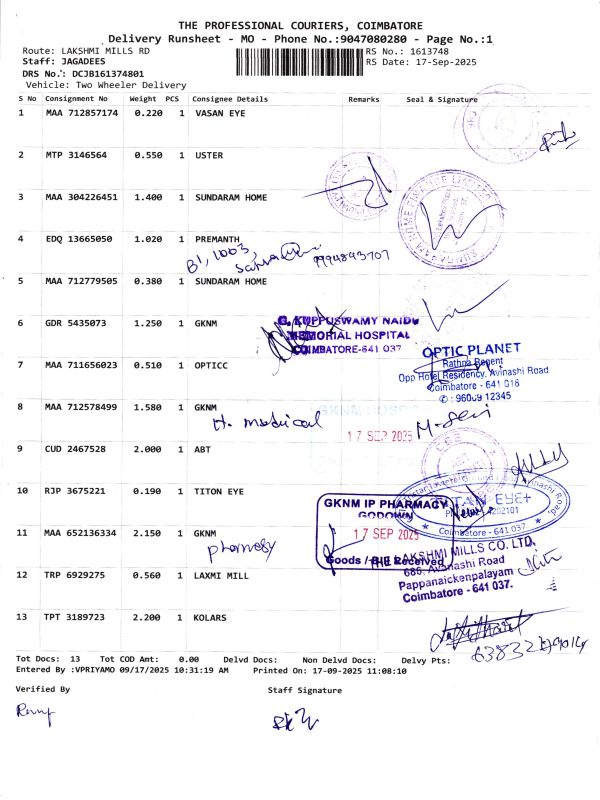 THE PROFESSIONAL COURIERS, COIMBATORE
Delivery Runsheet - MO - Phone No.:9047080280 - Page No.:1
Route: LAKSHMI MILLS RD RS No.: 1613748
Staff: JAGADEES RS Date: 17-Sep-2025
DRS No.: DCJB161374801
Vehicle: Two Wheeler Delivery
S No Consignment No Weight PCS Consignee Details Remarks Seal & Signature
1 MAA 712857174 0.220 1 VASAN EYE
2 MTP 3146564 0.550 1 USTER
3 MAA 304226451 1.400 1 SUNDARAM HOME
4 EDQ 13665050 1.020 1 PREMANTH
B1, 1003, 9994893707
5 MAA 712779505 0.380 1 SUNDARAM HOME
6 GDR 5435073 1.250 1 GKNM
G. KUPPUSWAMY NAIDU
MEMORIAL HOSPITAL
COIMBATORE-641 037
7 MAA 711656023 0.510 1 OPTICC
OPTIC PLANET
Rathna Regent
Opp Hotel Residency, Avinashi Road
Coimbatore - 641 018
✆ : 96009 12345
8 MAA 712578499 1.580 1 GKNM
H. medical
GKNM HOSP
17 SEP 2025
9 CUD 2467528 2.000 1 ABT
10 RJP 3675221 0.190 1 TITON EYE
TITAN EYE+
Coimbatore - 641 037
GKNM IP PHARMACY
GODOWN
17 SEP 2025
Goods / Bill Received
11 MAA 652136334 2.150 1 GKNM
pharmacy
THE LAKSHMI MILLS CO. LTD.
686, Avinashi Road
Pappanaickenpalayam
Coimbatore - 641 037.
12 TRP 6929275 0.560 1 LAXMI MILL
13 TPT 3189723 2.200 1 KOLARS
Tot Docs: 13 Tot COD Amt: 0.00 Delvd Docs: Non Delvd Docs: Delvy Pts:
Entered By :VPRIYAMO 09/17/2025 10:31:19 AM Printed On: 17-09-2025 11:08:10
Verified By Staff Signature